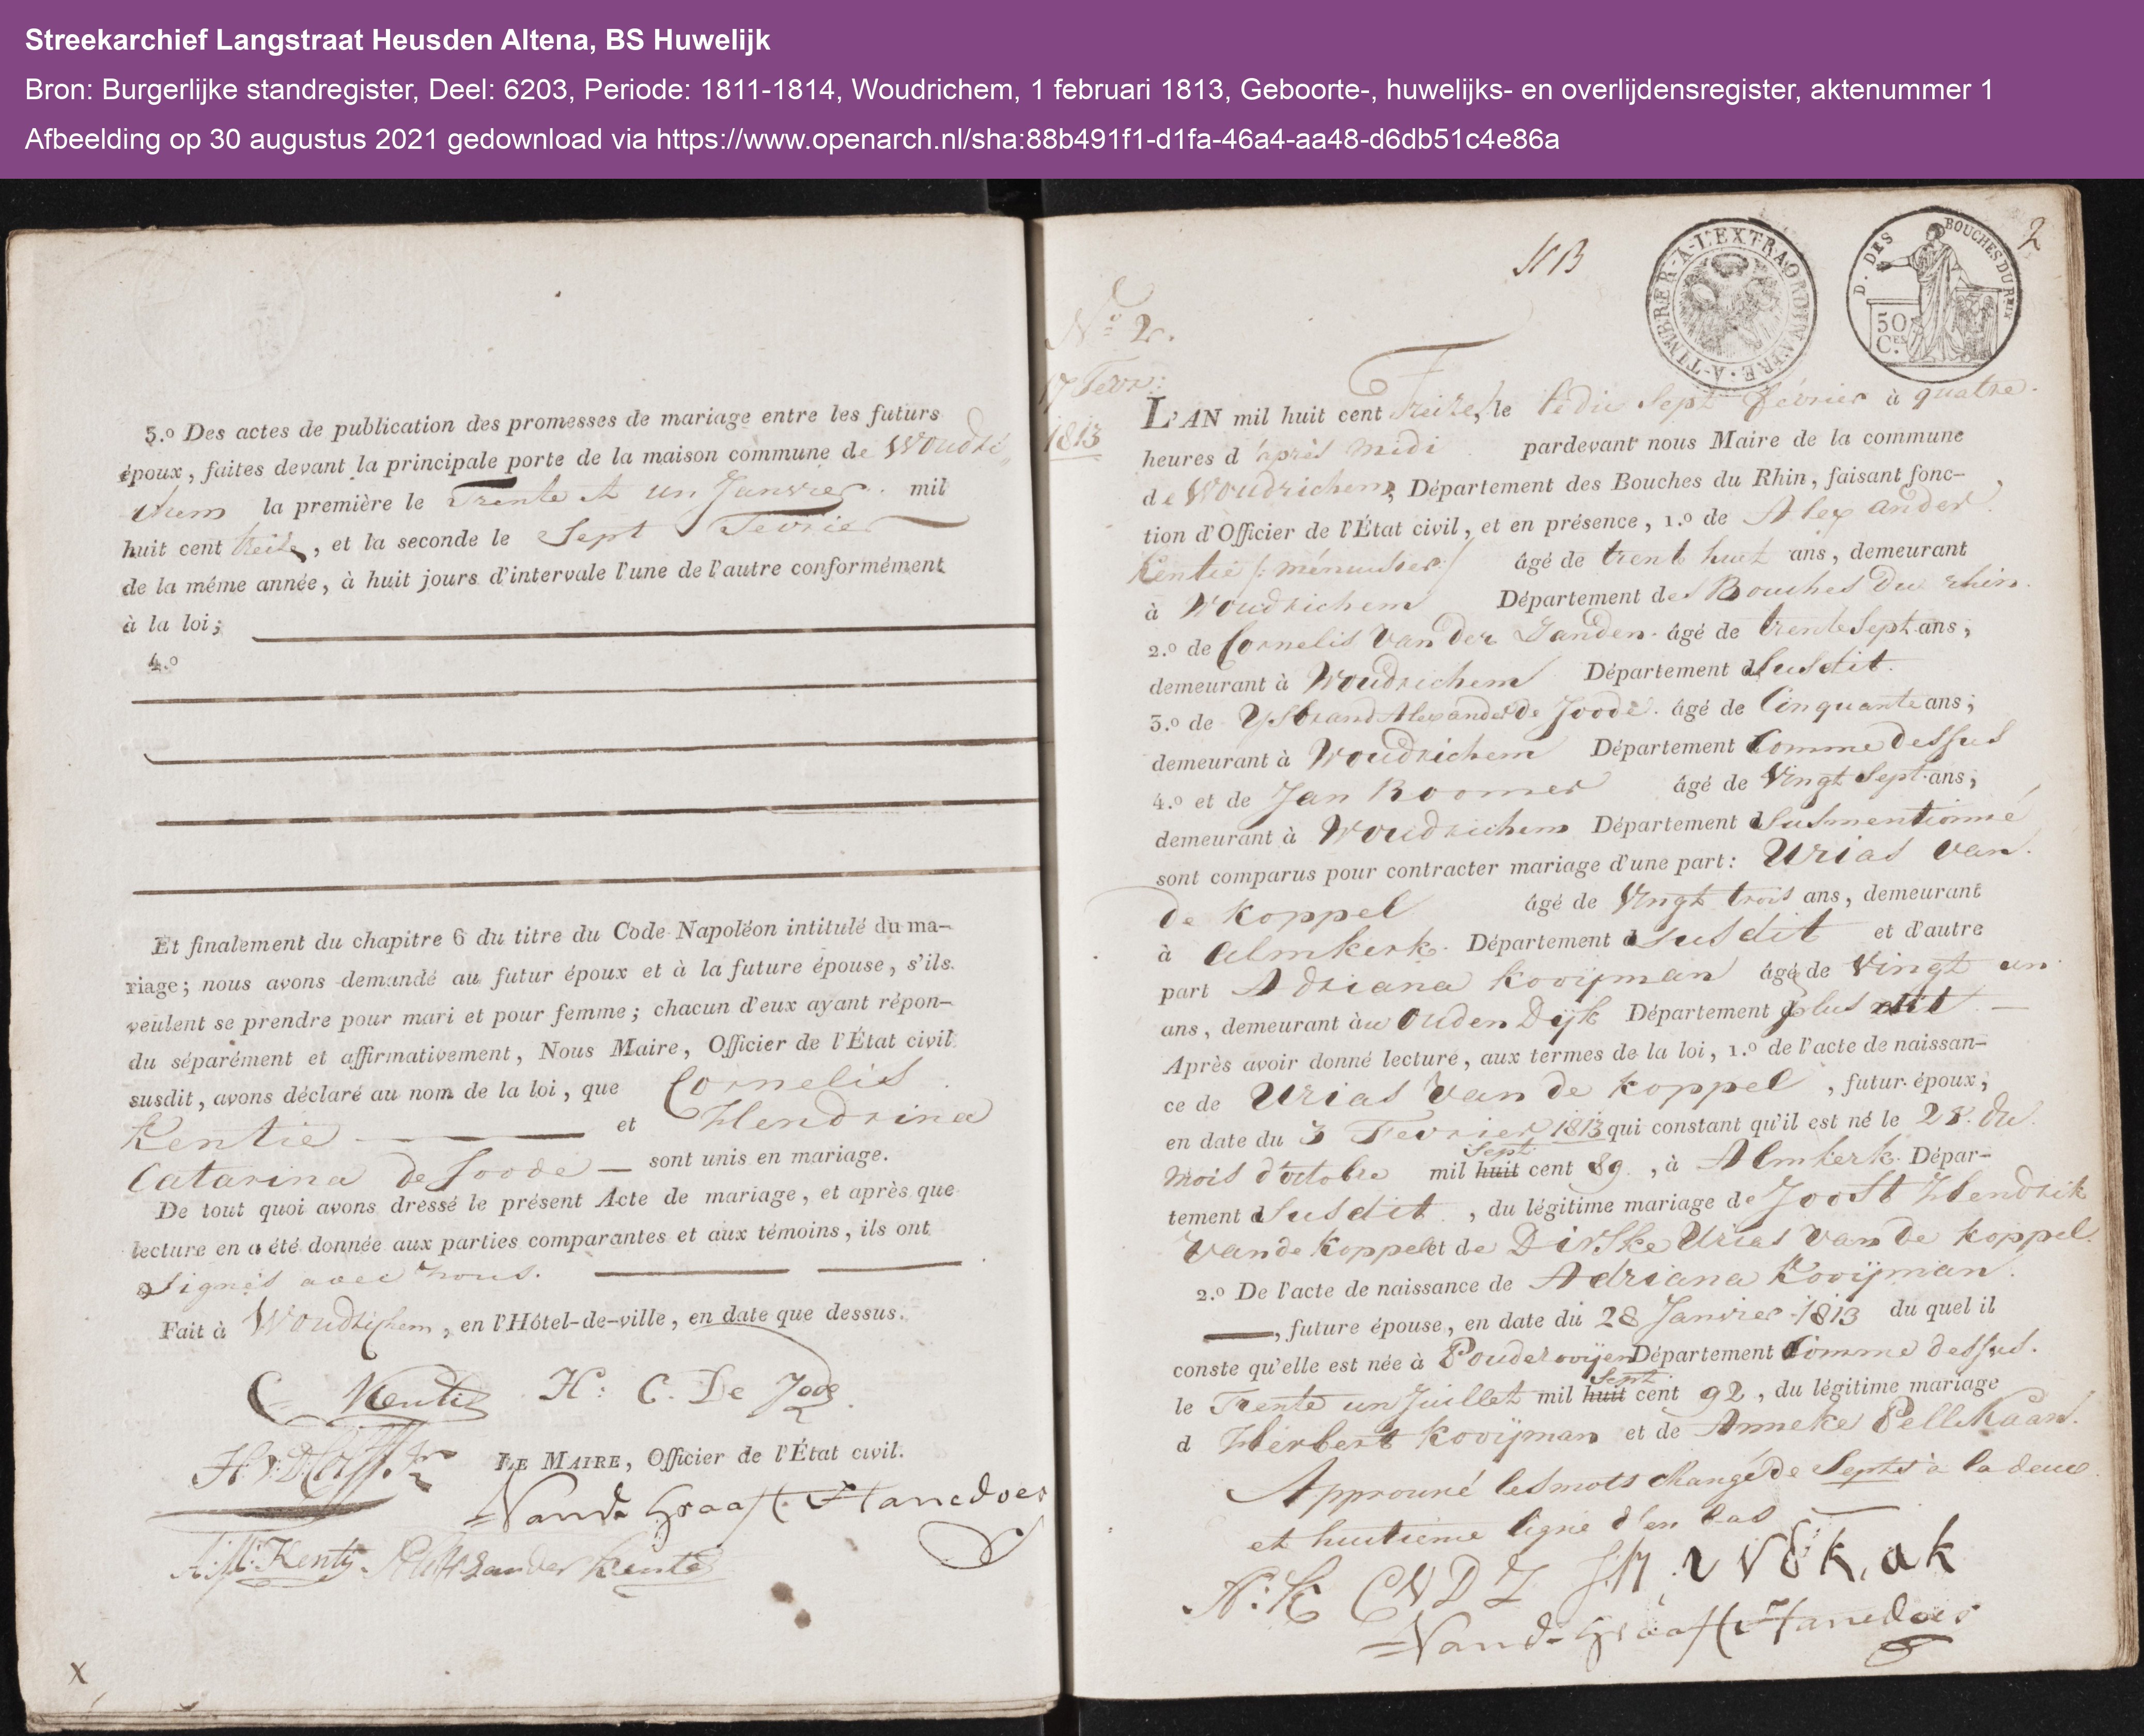 Streekarchief Langstraat Heusden Altena, BS Huwelijk
Bron: Burgerlijke standregister, Deel: 6203, Periode: 1811-1814, Woudrichem, 1 februari 1813, Geboorte-, huwelijks- en overlijdensregister, aktenummer 1
Afbeelding op 30 augustus 2021 gedownload via https://www.openarch.nl/sha:88b491f1-d1fa-46a4-aa48-d6db51c4e86a
3.º Des actes de publication des promesses de mariage entre les futurs
époux, faites devant la principale porte de la maison commune de Woudri„
chem la première le Trente et un Janvier mil
huit cent treize, et la seconde le Sept Fevrier
de la même année, à huit jours d'intervale l'une de l'autre conformément
à la loi;
4.º
Et finalement du chapitre 6 du titre du Code Napoléon intitulé du ma-
riage; nous avons demandé au futur époux et à la future épouse, s'ils
veulent se prendre pour mari et pour femme; chacun d'eux ayant répon-
du séparément et affirmativement, Nous Maire, Officier de l'État civil
susdit, avons déclaré au nom de la loi, que Cornelis
Kentie et Hendrina
Catarina de Joode sont unis en mariage.
De tout quoi avons dressé le présent Acte de mariage, et après que
lecture en a été donnée aux parties comparantes et aux témoins, ils ont
Signés avec nous.
Fait à Woudrichem, en l'Hôtel-de-ville, en date que dessus.
C Kentie H: C. De Jode
LE MAIRE, Officier de l'État civil.
Vand Graaff Hanedoes
A: M: Kentij Alexsander Kentie
X
NB
2
A TIMBRER A L'EXTRAORDINAIRE
D. DES BOUCHES DU RHIN
50 C.es
Nº 2.
17 Fevr:
1813
L'AN mil huit cent Treize, le 1edix Sept février à quatre
heures d'après midi pardevant nous Maire de la commune
de Woudrichem, Département des Bouches du Rhin, faisant fonc-
tion d'Officier de l'État civil, et en présence, 1.º de Alexander
Kentie /: ménusier:/ âgé de trent huit ans, demeurant
à Woudrichem Département des Bouches Du rhin
2.º de Cornelis van der Zanden âgé de trente Sept ans,
demeurant à Woudrichem Département Susdit
3.º de Ysbrand Alexander de Joode âgé de Cinquante ans;
demeurant à Woudrichem Département Comme dessus
4.º et de Jan Roomer âgé de Vingt Sept ans;
demeurant à Woudrichem Département Susmentionné
sont comparus pour contracter mariage d'une part: Urias van
de koppel âgé de Vingt trois ans, demeurant
à Almkerk Département dsusdit et d'autre
part Adriana Kooijman âgé de Vingt un
ans, demeurant àu Ouden Dijk Département plus dit
Après avoir donné lecture, aux termes de la loi, 1.º de l'acte de naissan-
ce de Urias Van de koppel, futur époux,
en date du 3 Fevrier 1813 qui constant qu'il est né le 28. du
Sept
mois d'octobre mil huit cent 89, à Almkerk Dépar-
tement dSusdit, du légitime mariage de Joost Hendrik
Van de Koppel et de Dirske Urias van de koppel
2.º De l'acte de naissance de Adriana Kooijman
, future épouse, en date du 28 Janvier 1813 du quel il
conste qu'elle est née à Pouderooijen Département Comme dessus.
Sept
le Trente un Juillet mil huit cent 92, du légitime mariage
d Herbert Kooijman et de Anneke Pellikaan.
Approuvé les mots changé de Septs à la deux
et huitieme ligne d'en bas
A: K CVDZ
Vand Graaff Hanedoes